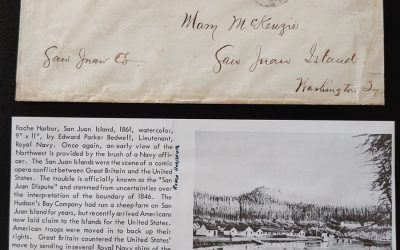 Mary McKenzie
San Juan Co.
San Juan Island.
Washington Ty.
Roche Harbor, San Juan Island, 1861, watercolor,
9" x 11", by Edward Parker Bedwell, Lieutenant,
Royal Navy. Once again, an early view of the
Northwest is provided by the brush of a Navy offi-
cer. The San Juan Islands were the scene of a comic
opera conflict between Great Britain and the United
States. The trouble is officially known as the "San
Juan Dispute" and stemmed from uncertainties over
the interpretation of the boundary of 1846. The
Hudson's Bay Company had run a sheep farm on
San Juan Island for years, but recently arrived Americans
now laid claim to the Islands for the United States.
American troops were moved in to back up their
rights. Great Britain countered the United States'
move by sending in several Royal Navy ships of the